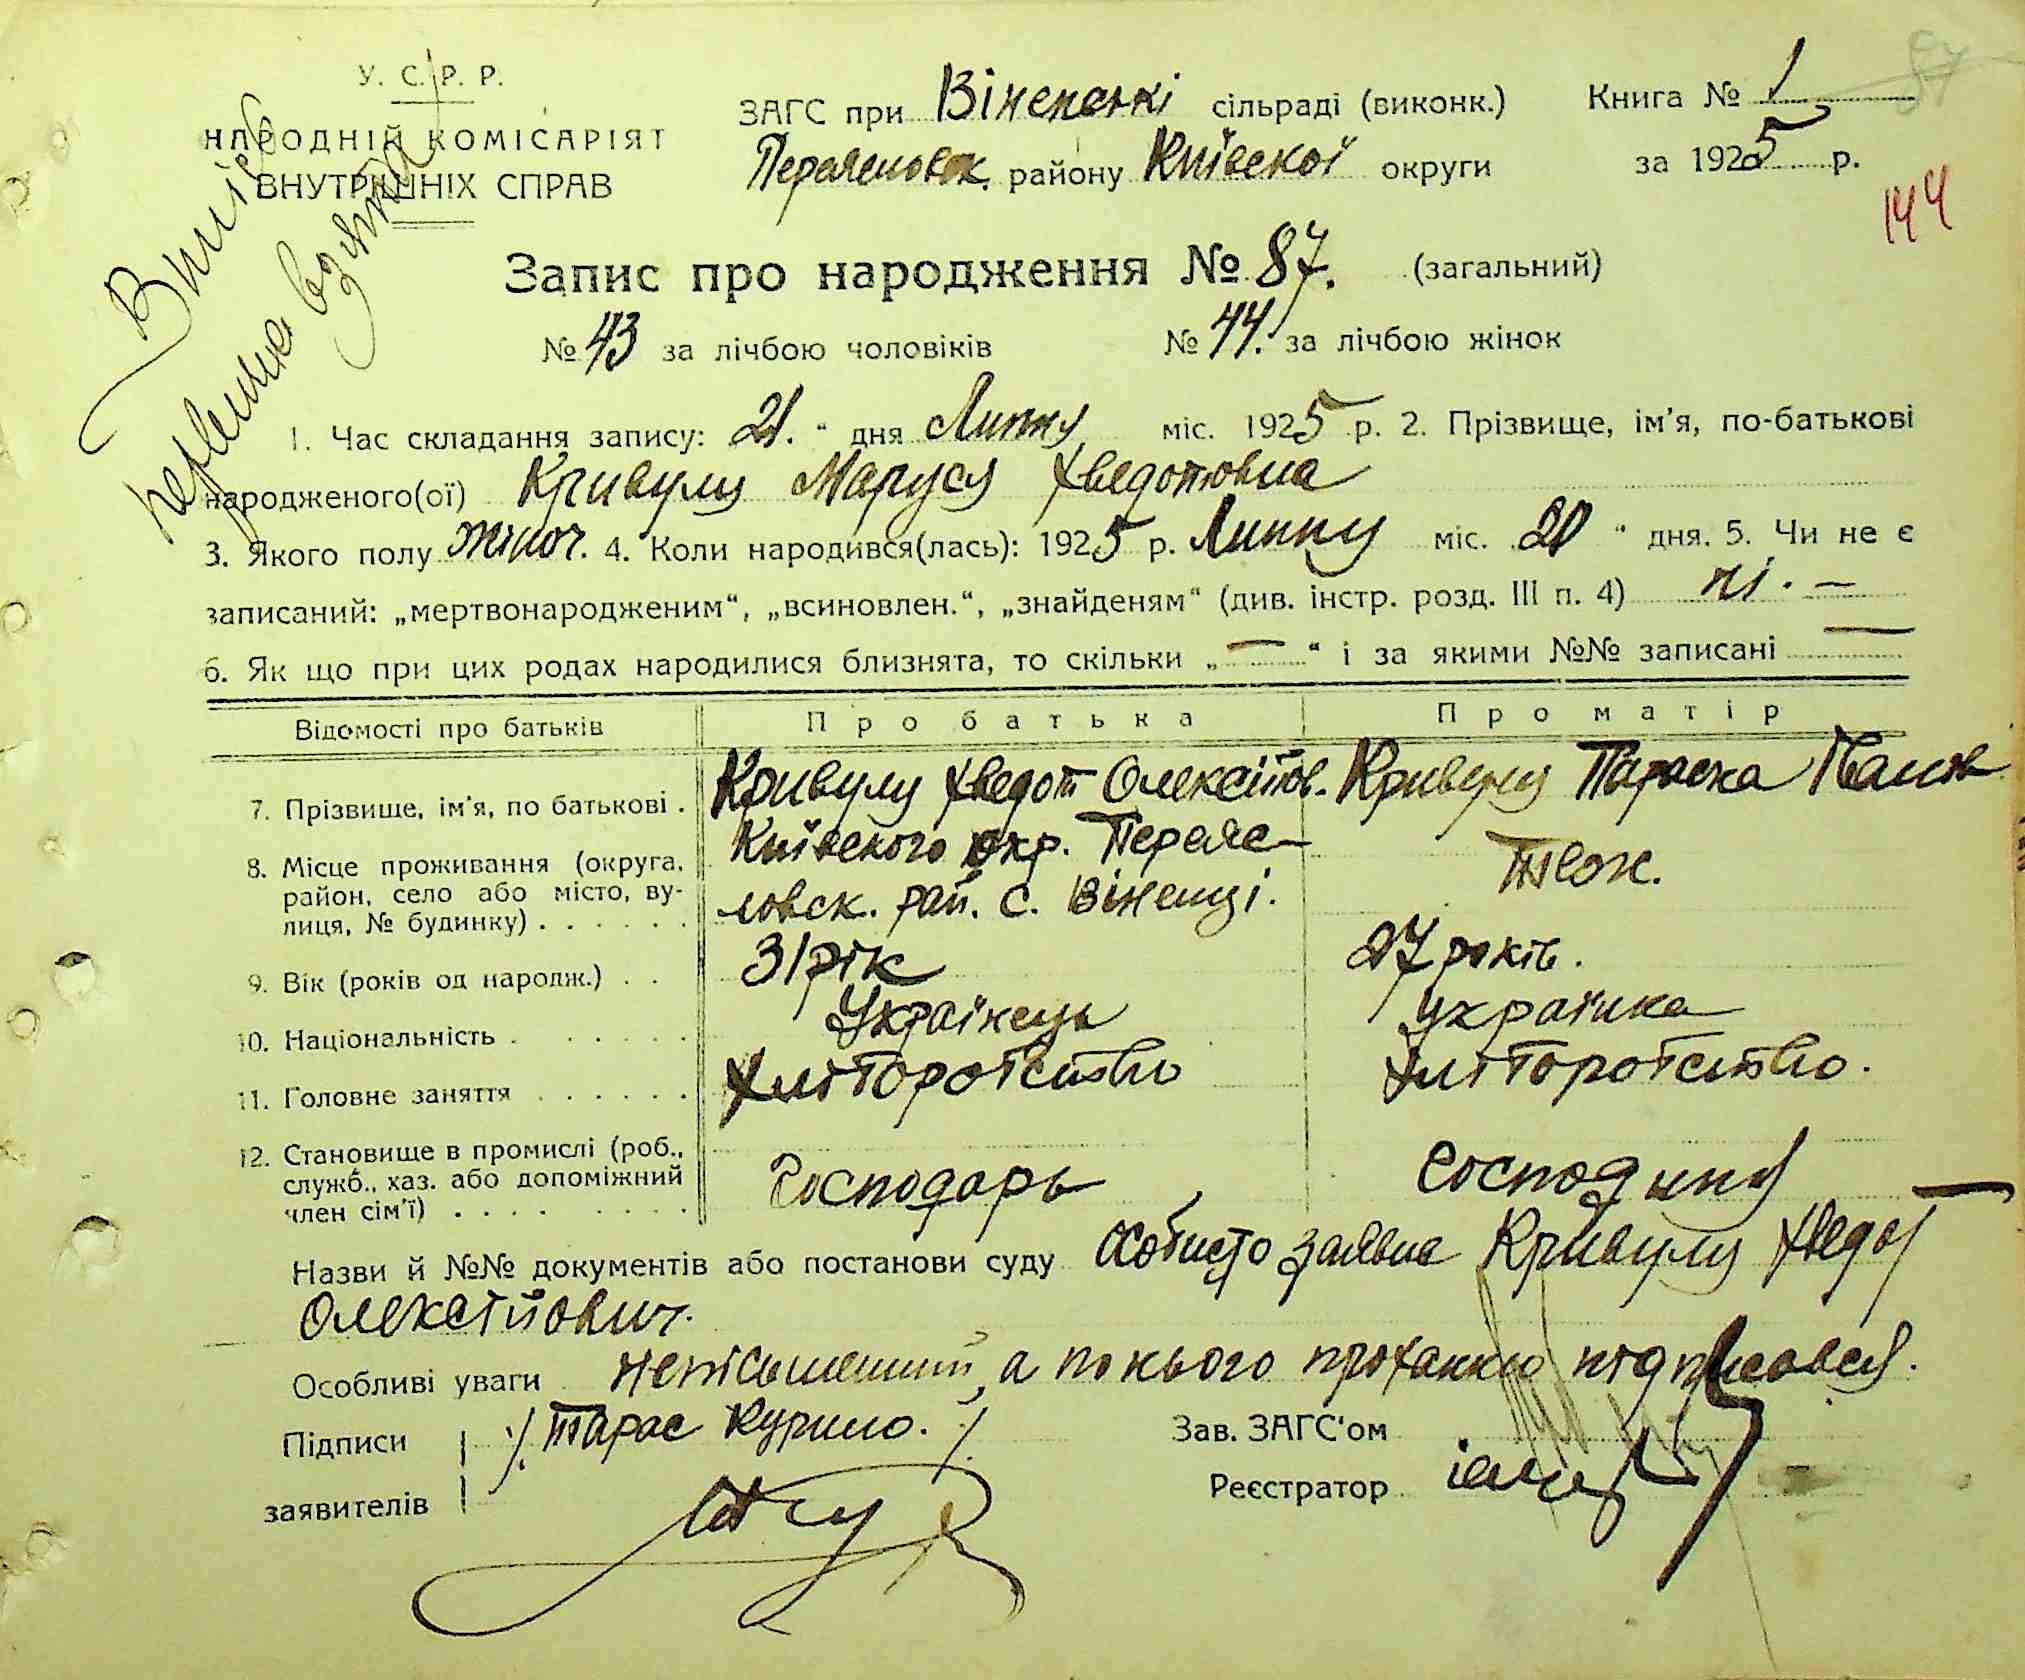 У. С. Р. Р.
НАРОДНІЙ КОМІСАРІЯТ
ВНУТРІШНІХ СПРАВ
Випісь
первична взята
ЗАГС при Віненській сільраді (виконк.)
Переясловск. району Київскої округи
Книга № 1
за 1925 р.
144
Запис про народження № 87. (загальний)
№ 43 за лічбою чоловіків № 44. за лічбою жінок
1. Час складання запису: 21. " дня Липня міс. 1925 р. 2. Прізвище, ім'я, по-батькові
народженого(ої) Кривуля Маруся Хведотовна
3. Якого полу жіноч. 4. Коли народився(лась): 1925 р. Липня міс. 20 " дня. 5. Чи не є
записаний: „мертвонародженим“, „всиновлен.“, „знайденям“ (див. інстр. розд. III п. 4) ні. —
6. Як що при цих родах народилися близнята, то скільки „—“ і за якими №№ записані —
Відомості про батьків Про батька Про матір
7. Прізвище, ім'я, по батькові . Кривуля Хведот Олексійов. Кривуля Параска
8. Місце проживання (округа, район, село або місто, вулиця, № будинку) . . . . . . Київского окр. Переяс-
ловск. рай. с. Віненці. Теж.
9. Вік (років од народж.) . . 31 рік 27 років.
10. Національність . . . . . . Українець Українка
11. Головне заняття . . . . . . Хліборобство Хліборобство.
12. Становище в промислі (роб., служб., хаз. або допоміжний член сім'ї) . . . . . . . . Господарь Господиня
Назви й №№ документів або постанови суду особисто заявив Кривуля Хведот
Олексійович.
Особливі уваги неписьменний, а по його проханню підписався.
Підписи заявителів Тарас Курило.
Зав. ЗАГС'ом
Реєстратор